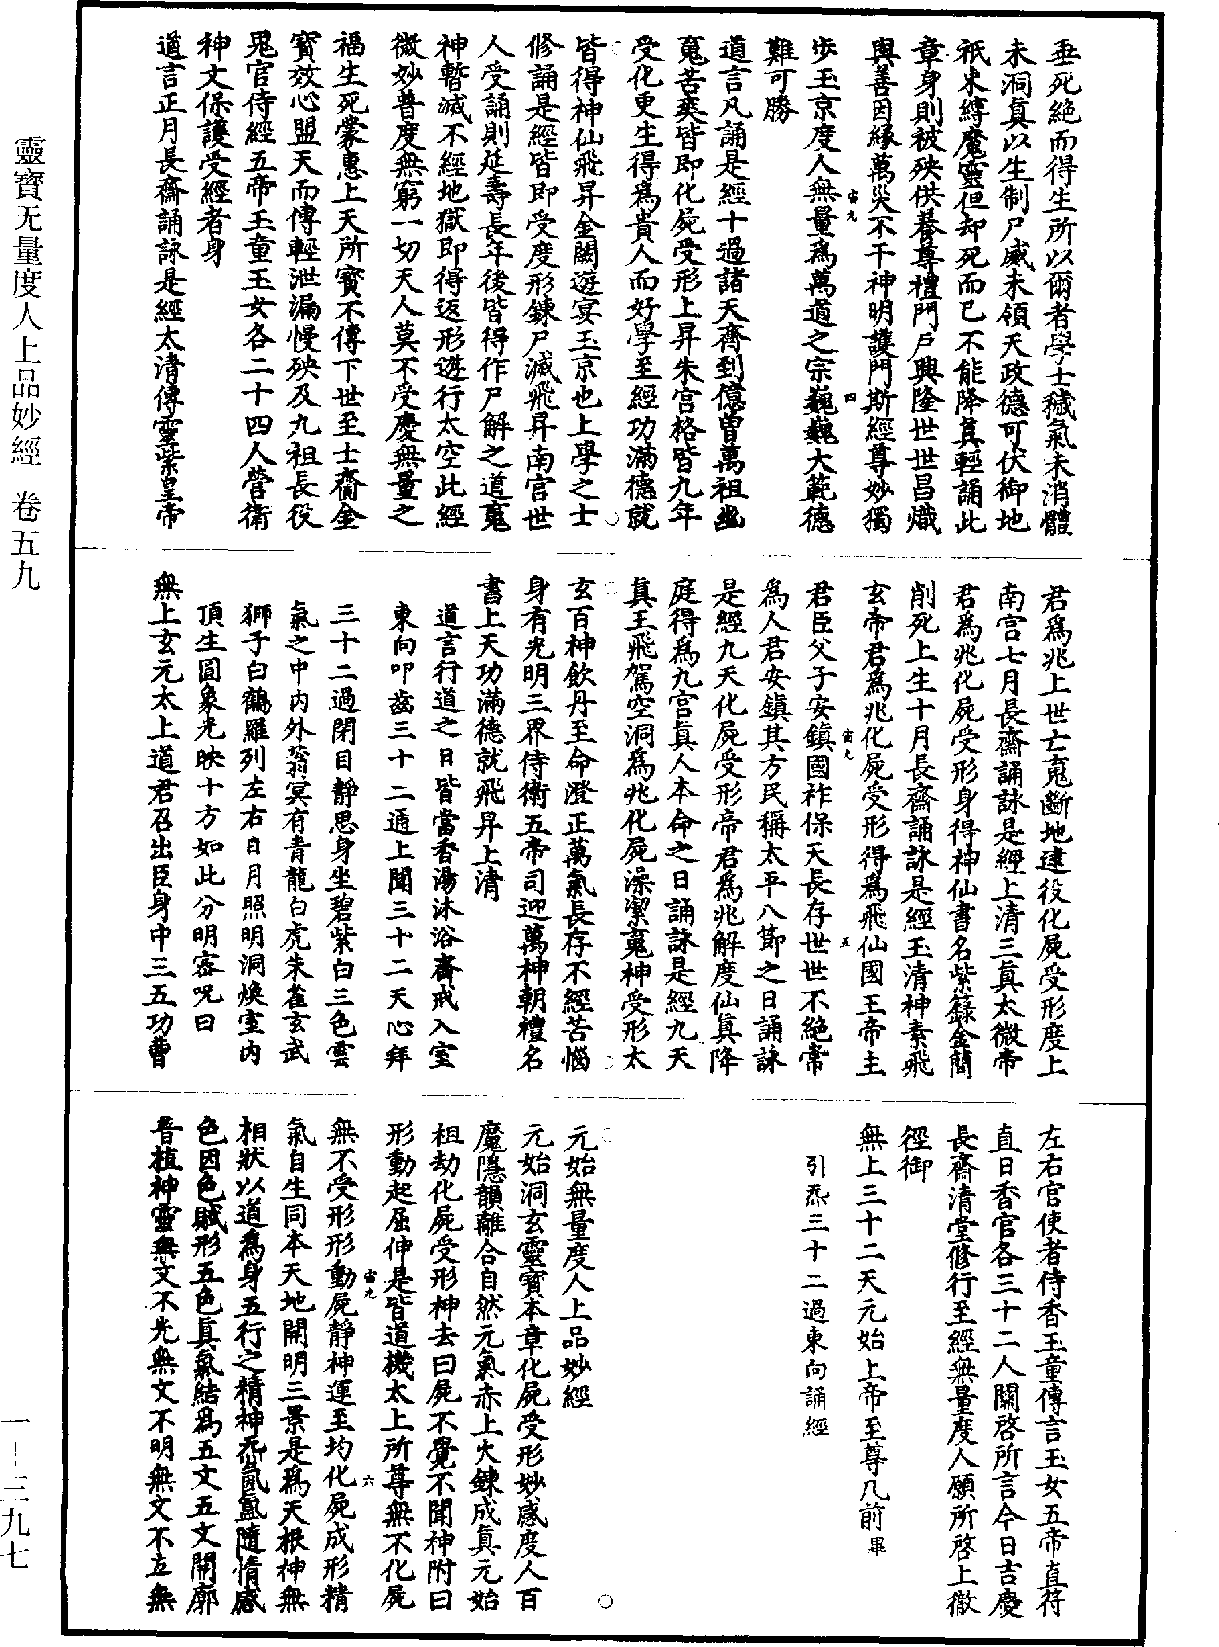 靈寶无量度人上品妙經 卷五九
一－三九七
垂死絕而得生所以爾者學士穢氣未消體
未洞真以生制尸威未領天政德可伏御地
祇束縛魔靈但却死而已不能降真輕誦此
章身則被殃供養尊禮門戶興隆世世昌熾
與善因緣萬災不干神明護門斯經尊妙獨
步玉京度人無量為萬道之宗巍巍大範德
難可勝
道言凡誦是經十過諸天齊到億曾萬祖幽
䰟苦爽皆即化屍受形上昇朱宮格皆九年
受化更生得為貴人而好學至經功滿德就
皆得神仙飛昇金闕遊宴玉京也上學之士
修誦是經皆即受度形鍊尸滅飛昇南宮世
人受誦則延壽長年後皆得作尸解之道䰟
神暫滅不經地獄即得返形遊行太空此經
微妙普度無窮一切天人莫不受慶無量之
福生死蒙惠上天所寶不傳下世至士齎金
寶效心盟天而傳輕泄漏慢殃及九祖長役
鬼官侍經五帝玉童玉女各二十四人營衛
神文保護受經者身
道言正月長齋誦詠是經太清傳靈紫皇帝
宙九
四
君為兆上世亡䰟斷地逮役化屍受形度上
南宮七月長齋誦詠是經上清三真太微帝
君為兆化屍受形身得神仙書名紫籙金簡
削死上生十月長齋誦詠是經玉清神素飛
玄帝君為兆化屍受形得為飛仙國王帝主
君臣父子安鎮國祚保天長存世世不絕常
為人君安鎮其方民稱太平八節之日誦詠
是經九天化屍受形帝君為兆解度仙真降
庭得為九宮真人本命之日誦詠是經九天
真王飛駕空洞為兆化屍澡潔䰟神受形太
玄百神飲丹至命澄正萬氣長存不經苦惱
身有光明三界侍衛五帝司迎萬神朝禮名
書上天功滿德就飛昇上清
道言行道之日皆當香湯沐浴齋戒入室
東向叩齒三十二通上聞三十二天心拜
三十二過閉目靜思身坐碧紫白三色雲
氣之中內外蓊冥有青龍白虎朱雀玄武
獅子白鶴羅列左右日月照明洞煥室內
頂生圓象光映十方如此分明密呪曰
無上玄元太上道君召出臣身中三五功曹
宙九
五
左右官使者侍香玉童傳言玉女五帝直符
直日香官各三十二人關啓所言今日吉慶
長齋清堂修行至經無量度人願所啓上徹
徑御
無上三十二天元始上帝至尊几前畢
引炁三十二過東向誦經
元始無量度人上品妙經
元始洞玄靈寶本章化屍受形妙感度人百
魔隱韻離合自然元氣赤上火鍊成真元始
祖劫化屍受形神去曰屍不覺不聞神附曰
形動起屈伸是皆道機太上所尊無不化屍
無不受形形動屍靜神運至均化屍成形精
氣自生同本天地開明三景是為天根神無
相狀以道為身五行之精神炁氤氳隨情感
色因色賦形五色真氣結為五文五文開廓
普植神靈無文不光無文不明無文不立無
宙九
六